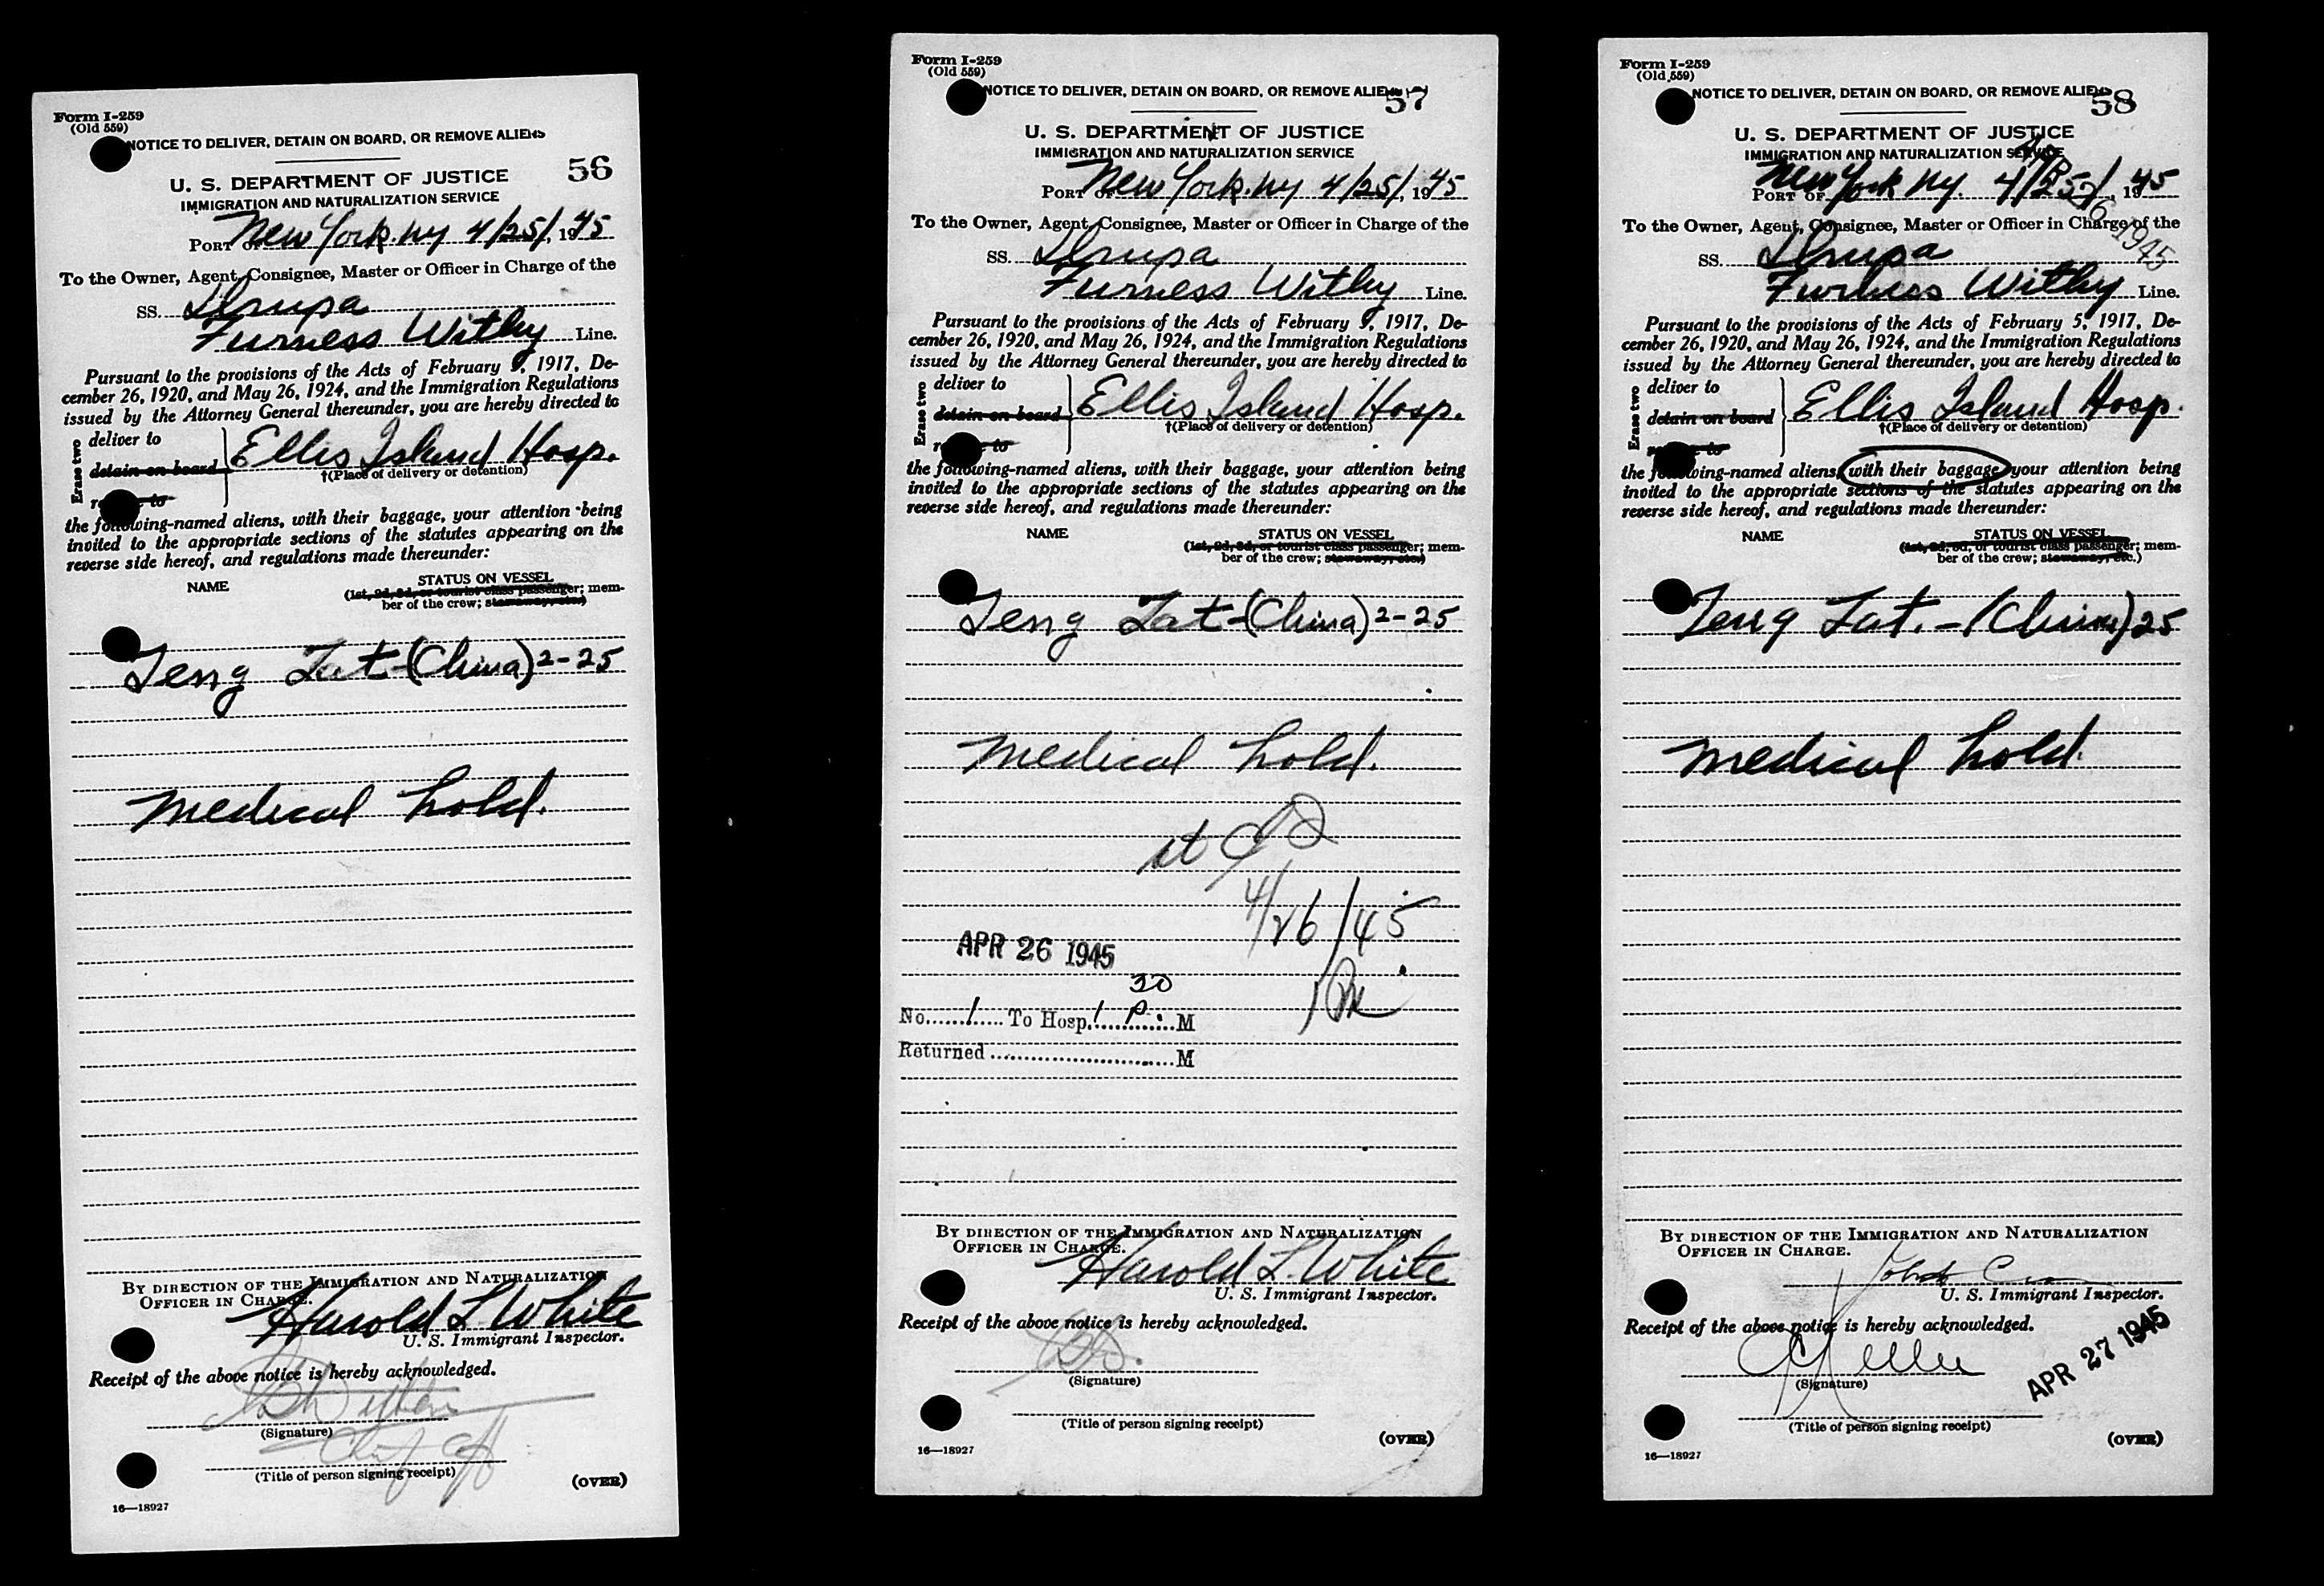 Form I-259
(Old 559)
NOTICE TO DELIVER, DETAIN ON BOARD, OR REMOVE ALIENS
56
U. S. DEPARTMENT OF JUSTICE
IMMIGRATION AND NATURALIZATION SERVICE
PORT OF New York. ny 4/25/, 1945
To the Owner, Agent, Consignee, Master or Officer in Charge of the
SS. Drupa
Furness Withy Line.
Pursuant to the provisions of the Acts of February 5, 1917, De-
cember 26, 1920, and May 26, 1924, and the Immigration Regulations
issued by the Attorney General thereunder, you are hereby directed to
Erase two
deliver to
detain on board
Ellis Island Hosp.
†(Place of delivery or detention)
the following-named aliens, with their baggage, your attention being
invited to the appropriate sections of the statutes appearing on the
reverse side hereof, and regulations made thereunder:
NAME
STATUS ON VESSEL
(1st, 2d, 3d, or tourist class passenger; mem-
ber of the crew; stowaway, etc.)
Teng Tat-(China) 2-25
Medical hold.
BY DIRECTION OF THE IMMIGRATION AND NATURALIZATION
OFFICER IN CHARGE.
Harold L White
U. S. Immigrant Inspector.
Receipt of the above notice is hereby acknowledged.
(Signature)
Chief Off
(Title of person signing receipt)
(OVER)
16—18927
Form I-259
(Old 559)
NOTICE TO DELIVER, DETAIN ON BOARD, OR REMOVE ALIENS
57
U. S. DEPARTMENT OF JUSTICE
IMMIGRATION AND NATURALIZATION SERVICE
PORT OF New York. ny 4/25/, 1945
To the Owner, Agent, Consignee, Master or Officer in Charge of the
SS. Drupa
Furness Withy Line.
Pursuant to the provisions of the Acts of February 5, 1917, De-
cember 26, 1920, and May 26, 1924, and the Immigration Regulations
issued by the Attorney General thereunder, you are hereby directed to
Erase two
deliver to
detain on board
Ellis Island Hosp.
†(Place of delivery or detention)
the following-named aliens, with their baggage, your attention being
invited to the appropriate sections of the statutes appearing on the
reverse side hereof, and regulations made thereunder:
NAME
STATUS ON VESSEL
(1st, 2d, 3d, or tourist class passenger; mem-
ber of the crew; stowaway, etc.)
Teng Tat-(China) 2-25
Medical hold.
4/26/45
APR 26 1945
No. 1 To Hosp. 1 30 P. M
Returned M
BY DIRECTION OF THE IMMIGRATION AND NATURALIZATION
OFFICER IN CHARGE.
Harold L. White
U. S. Immigrant Inspector.
Receipt of the above notice is hereby acknowledged.
(Signature)
(Title of person signing receipt)
(OVER)
16—18927
Form I-259
(Old 559)
NOTICE TO DELIVER, DETAIN ON BOARD, OR REMOVE ALIENS
58
U. S. DEPARTMENT OF JUSTICE
IMMIGRATION AND NATURALIZATION SERVICE
APR 26 1945
PORT OF New York ny. 4/25/, 1945
To the Owner, Agent, Consignee, Master or Officer in Charge of the
SS. Drupa
Furness Withy Line.
Pursuant to the provisions of the Acts of February 5, 1917, De-
cember 26, 1920, and May 26, 1924, and the Immigration Regulations
issued by the Attorney General thereunder, you are hereby directed to
Erase two
deliver to
detain on board
Ellis Island Hosp.
†(Place of delivery or detention)
the following-named aliens, with their baggage, your attention being
invited to the appropriate sections of the statutes appearing on the
reverse side hereof, and regulations made thereunder:
NAME
STATUS ON VESSEL
(1st, 2d, 3d, or tourist class passenger; mem-
ber of the crew; stowaway, etc.)
Teng Tat.-(China) 25
Medical hold.
BY DIRECTION OF THE IMMIGRATION AND NATURALIZATION
OFFICER IN CHARGE.
U. S. Immigrant Inspector.
Receipt of the above notice is hereby acknowledged.
APR 27 1945
(Signature)
(Title of person signing receipt)
(OVER)
16—18927